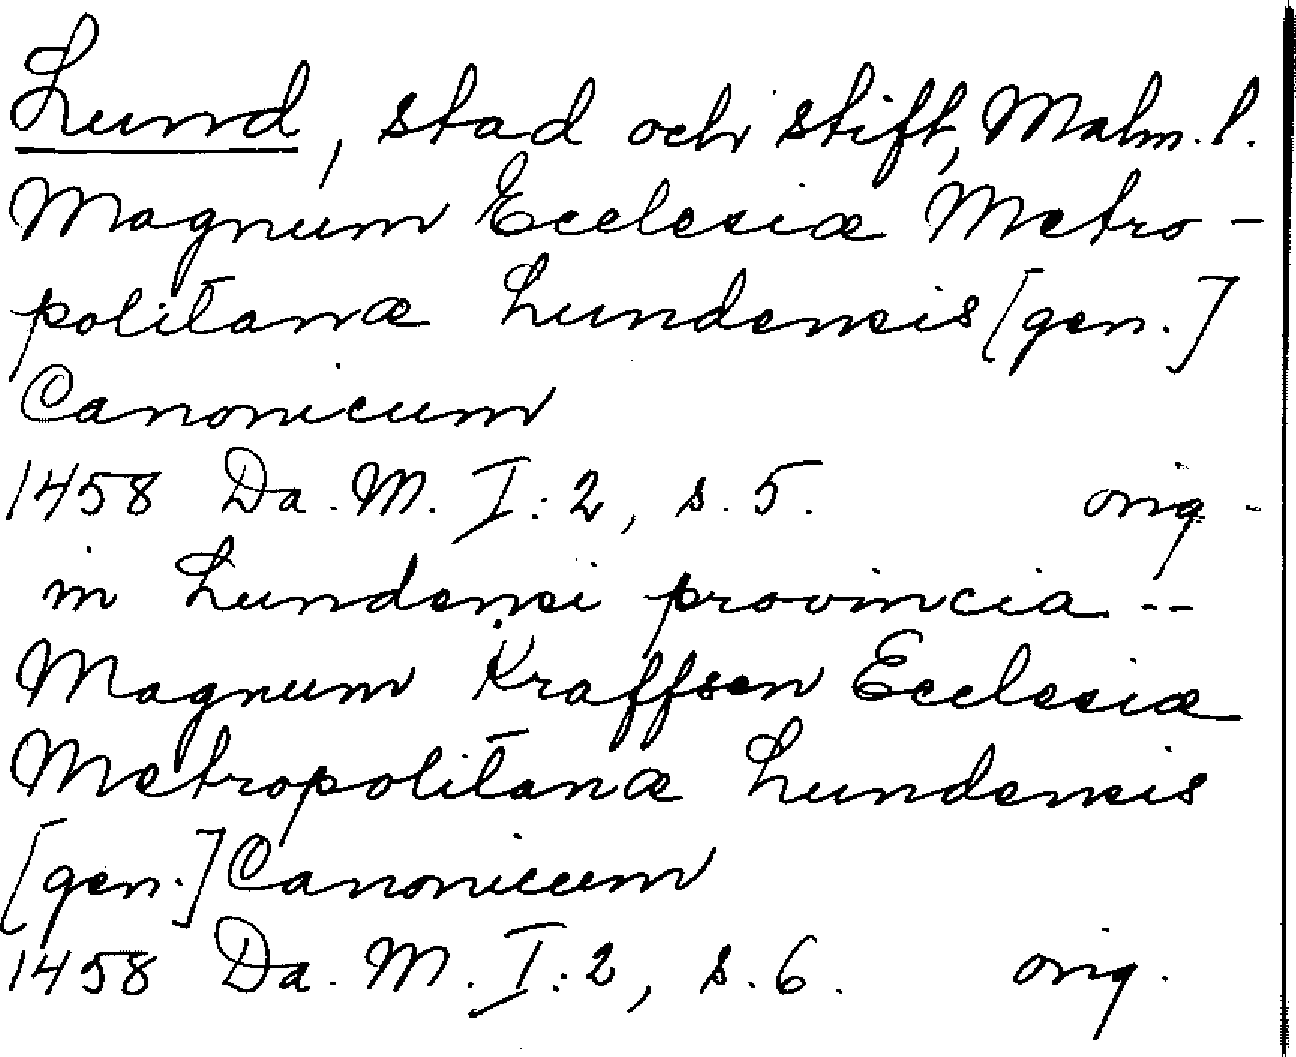 Lund, stad och stift, Malm. l.
Magnum Ecclesiæ Metro-
politanæ Lundensis [gen.]
Canonicum
1458 Da. M. I:2, s. 5. orig.
in Lundensi provincia --
Magnum Kraffsen Ecclesiæ
Metropolitanæ Lundensis
[gen.] Canonicum
1458 Da. M. I:2, s. 6. orig.